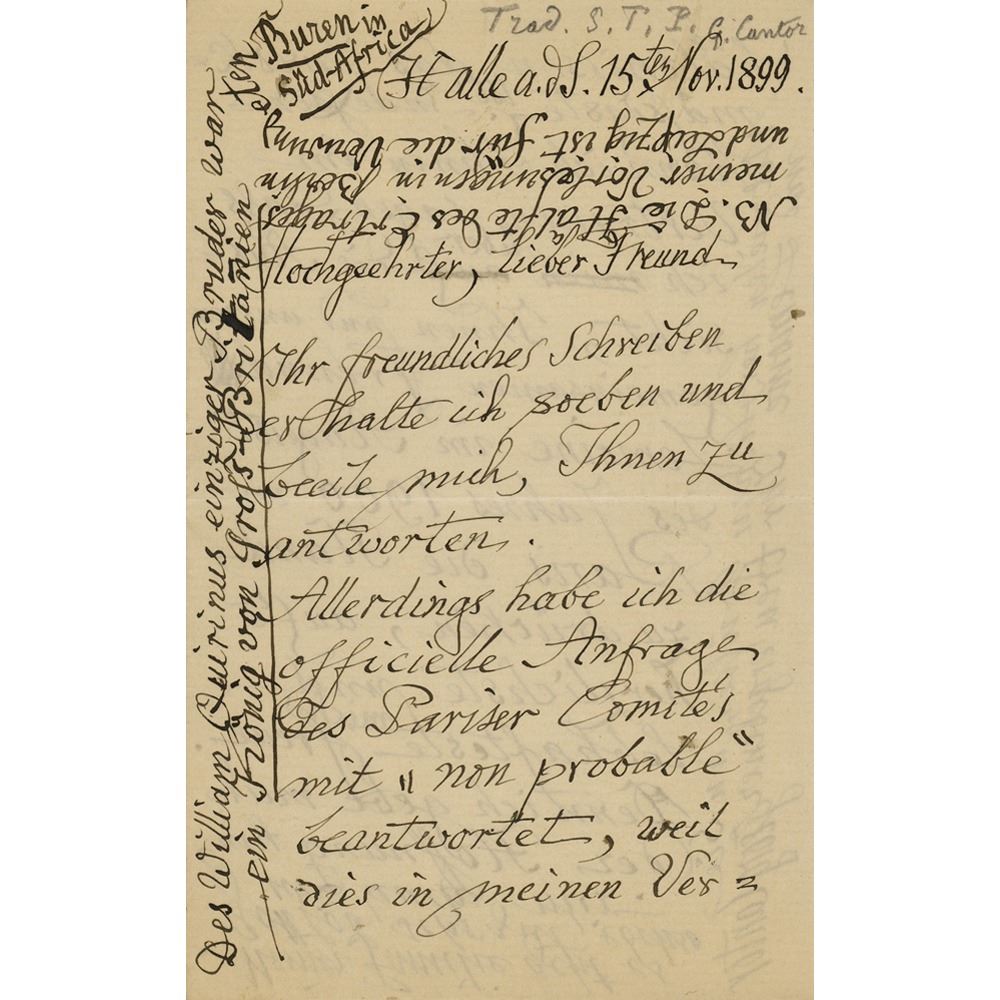 Trad. S. T. P. G. Cantor
Halle a. d. S. 15ten Nov. 1899.
NB. Die Hälfte des Ertrages
meiner Vorlesungen in Berlin
und Leipzig ist für die
Buren in
Süd-Africa
Hochgeehrter, lieber Freund
Ihr freundliches Schreiben
erhalte ich soeben und
beeile mich, Ihnen zu
antworten.
Allerdings habe ich die
officielle Anfrage
des Pariser Comités
mit „non probable“
beantwortet, weil
dies in meinen Ver=
Des William Quirinus einziger Bruder war
ein König von Groß-Britanien